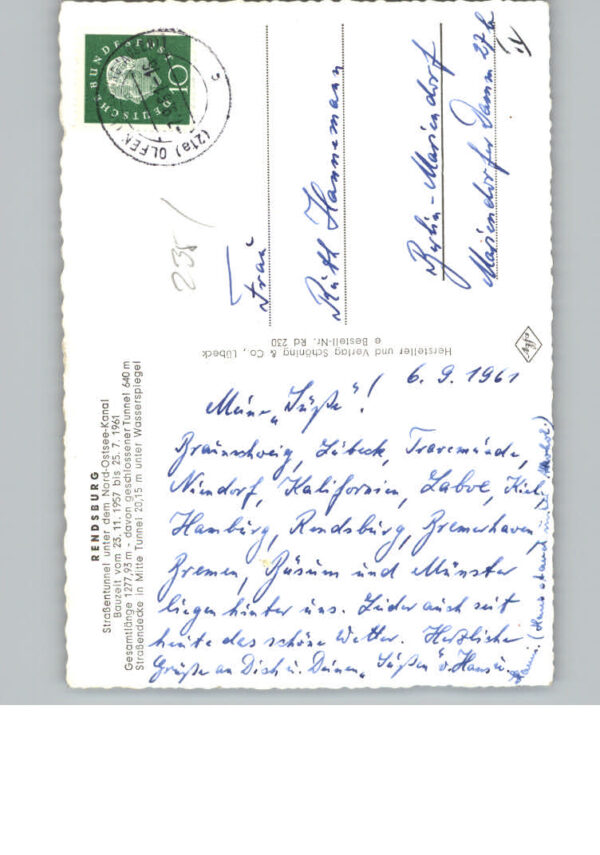 RENDSBURG
Straßentunnel unter dem Nord-Ostsee-Kanal
Bauzeit vom 23. 11. 1957 bis 25. 7. 1961
Gesamtlänge 1277,93 m - davon geschlossener Tunnel 640 m
Straßendecke in Mitte Tunnel 20,15 m unter Wasserspiegel
6. 9. 1961
Meine „Süße"!
Braunschweig, Lübeck, Travemünde,
Niendorf, Kalifornien, Laboe, Kiel,
Hamburg, Rendsburg, Bremerhaven,
Bremen, Büsum und Münster
liegen hinter uns. Leider auch seit
heute das schöne Wetter. Herzliche
Grüße an Dich u. Deinen „Süßen" v. Hans u.
Hersteller und Verlag Schöning & Co., Lübeck
Bestell-Nr. Rd 230
DEUTSCHE BUNDESPOST
10
(21a) OLFEN
235
Frau
Ruth Hannemann
Berlin-Mariendorf
Mariendorfer Damm 27b
IV